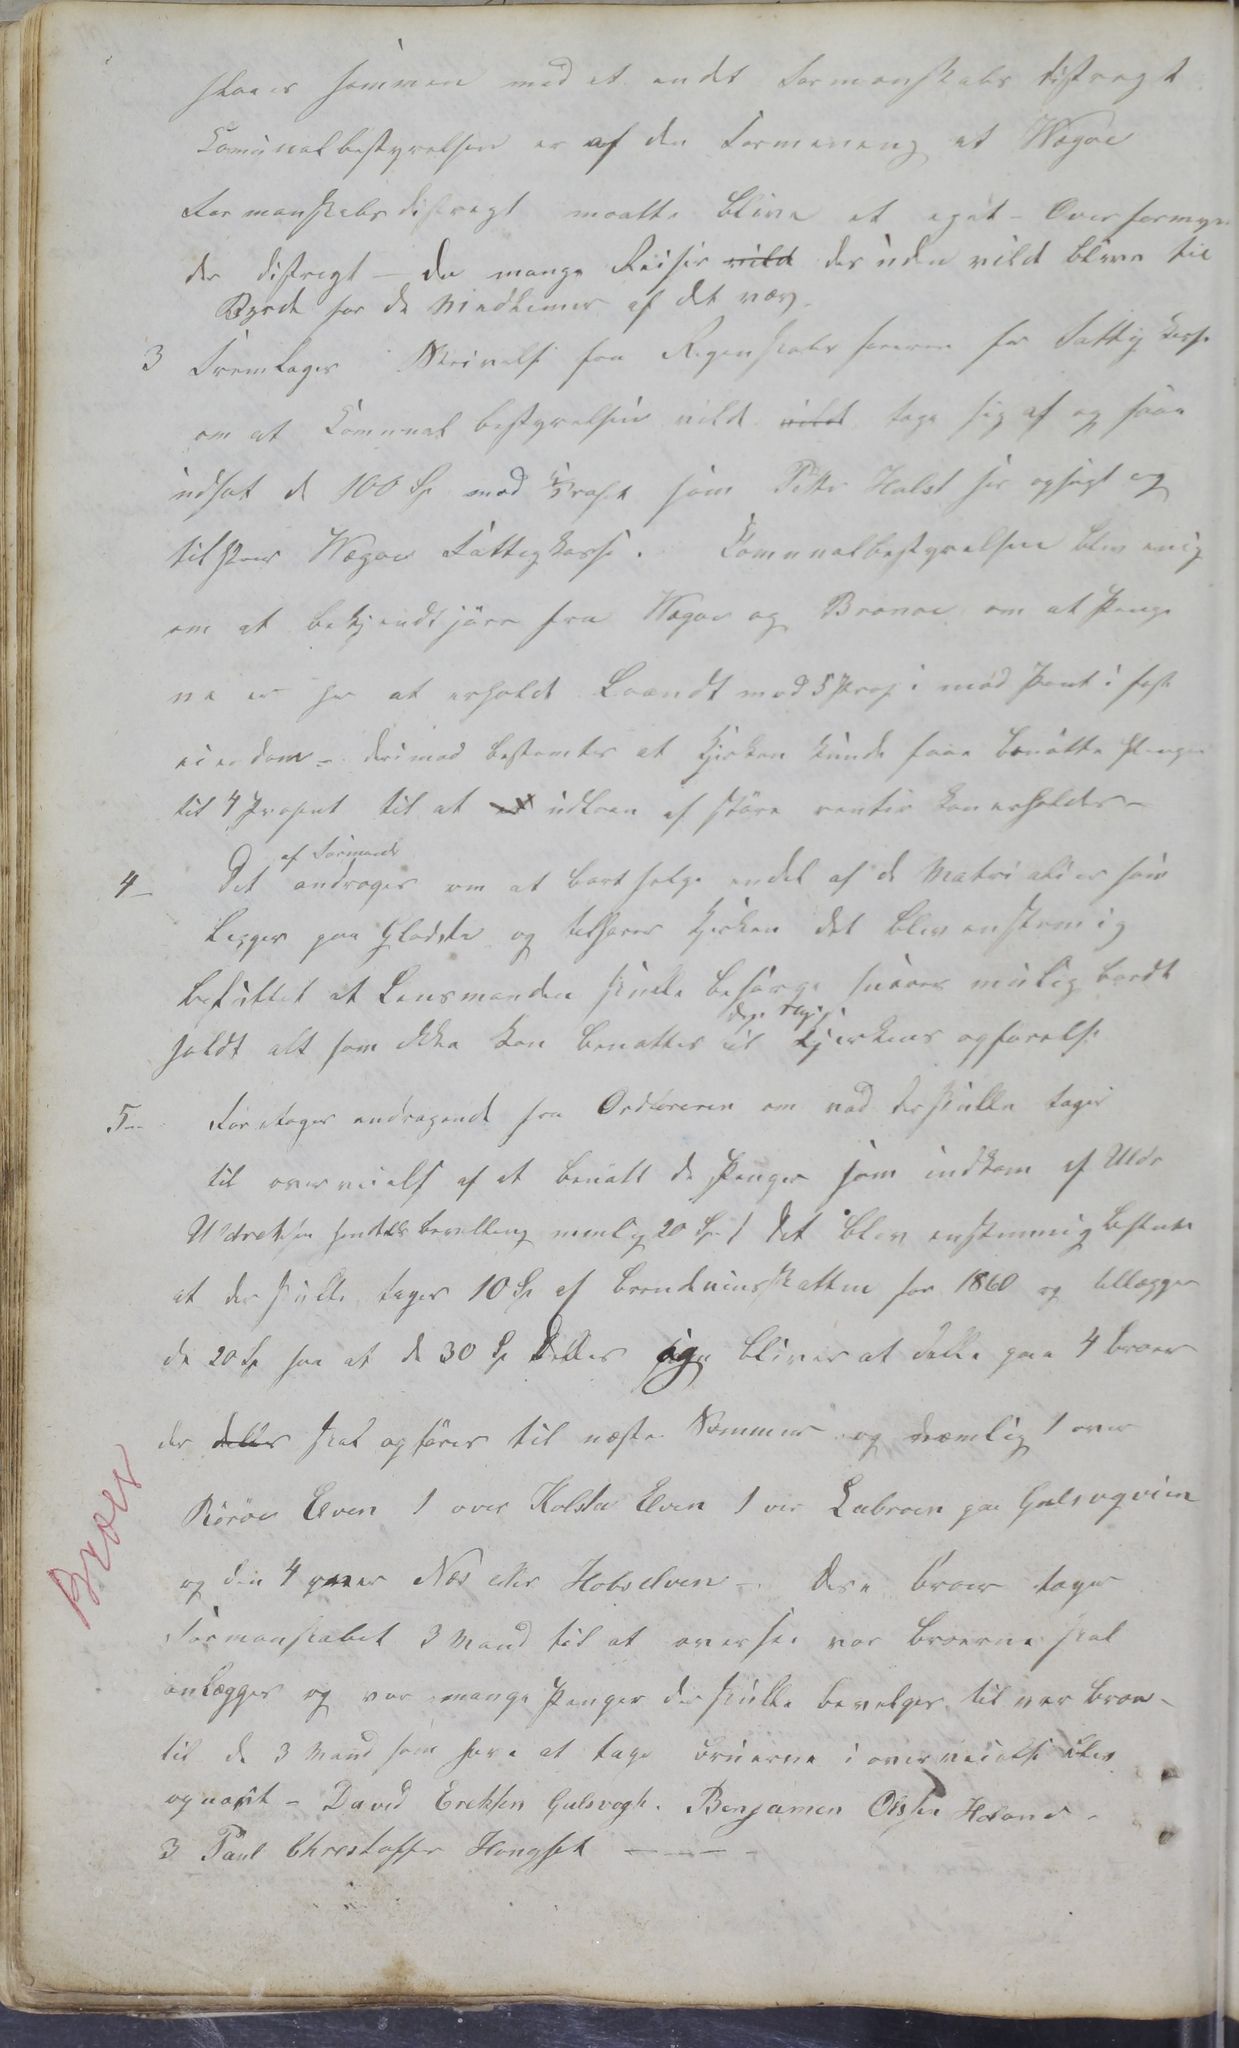 staar sammen med et andet Formanskabs distregt
Comunalbestyrelsen er af den Formenang at Wegøe
Formanskabsdistregt maatte blive et eget Overformyn
der distregt - de mange Reiser vild des uden vild blive til
Byrde for de Medlemer af det væv.
3 Fremlages Skrivelse fra Regenskabs føreren for Fattig kasse
om at Comunal bestyrelsen vild vild tage sig af og faae
udsat de 100 Sp mod Prosent som Petter Holst har opsagt og
tilhører Wegøe Fattigkasse. Comunalbestyrelsen blev enig
om at bekjendtjøre fra Wegøe og Brønøe om at Penge
ne er her at erholde Laandt mod 5 Pros i mod Pant i fast
eiendom - derimod bestemtes at Kjerken kunde faae benøtte Penger
til 4 Prosent til at udlaan af større renter kan erholdes -
af Formand
4 - Det androges om at bort selge endel af de Matrialier som
legger paa Gladsta og tilhører Kjerken det blev enstemig
besluttet at Lensmanden skulle besørge snarest mulig bordt
den nye
soldt alt som ikke kan benøttes til Kjerkens opførelse
5 - Foretages andragende fra Ordføreren om vad der skulle tages
til overveielse af at benøtt de Penger som indkom af Uldr
Uldriksen handels bevelling nemlig 20 Sp / det blev enstemmig bestemt
at der skulle tages 10 Sp af brendvinsskatten for 1860 og tillegges
de 20 Sp saa at de 30 Sp Deles og bliver at dele paa 4 broer
der deles skal opføres til neste Sommer og nemlig 1 over
Rørøe Elven 1 over Kolsta Elven 1 ver Labroen paa Gulsvogviien
og den 4 over Nos eller Hobselven - dese broer tager
Formanskabet 3 Mand til at overse vor broerne skal
anlegges og vor mange Penger der skulle bevelges til ver broe -
til de 3 Mand som have at tage bruerne i overveielse blev
opnevnt - David Ereksen Gulsvogh. Benjamen Olsen Holand -
3 Paul Chrestoffer Hongset
Broer